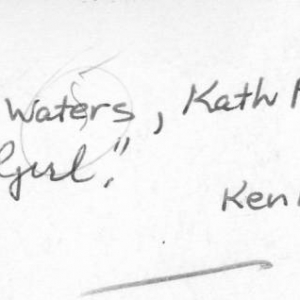 Waters, Kath
Girl,"
Ken